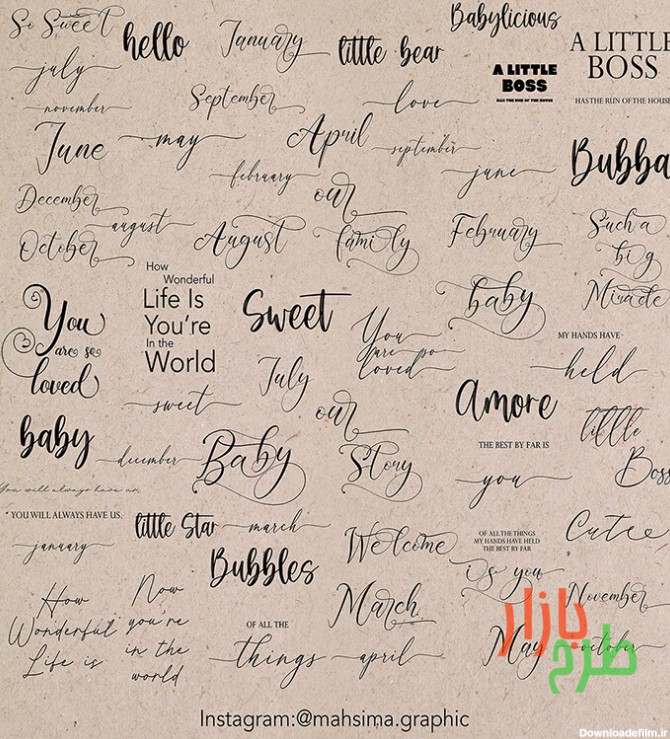 So Sweet
hello
January
little bear
Babylicious
A LITTLE
BOSS
HAS THE RUN OF THE HOUSE
A LITTLE
BOSS
HAS THE RUN OF THE HOUSE
july
november
September
love
June
may
April
september
june
Bubba
february
December
august
our
family
October
August
February
Such a
big
Miracle
You
are so
loved
How
Wonderful
Life Is
You're
In the
World
Sweet
You
are so
loved
baby
MY HANDS HAVE
held
July
sweet
our
Story
amore
little
Boss
baby
december
Baby
THE BEST BY FAR IS
you
You will always have us.
" YOU WILL ALWAYS HAVE US.
little Star
march
Welcome
OF ALL THE THINGS
MY HANDS HAVE HELD
THE BEST BY FAR
is you
Cutee
january
Bubbles
How
Wonderful
Life is
Now
you're
in the
world
OF ALL THE
things
March
april
November
May
october
بازار
طرح
Instagram:@mahsima.graphic
Downloadefilm.ir